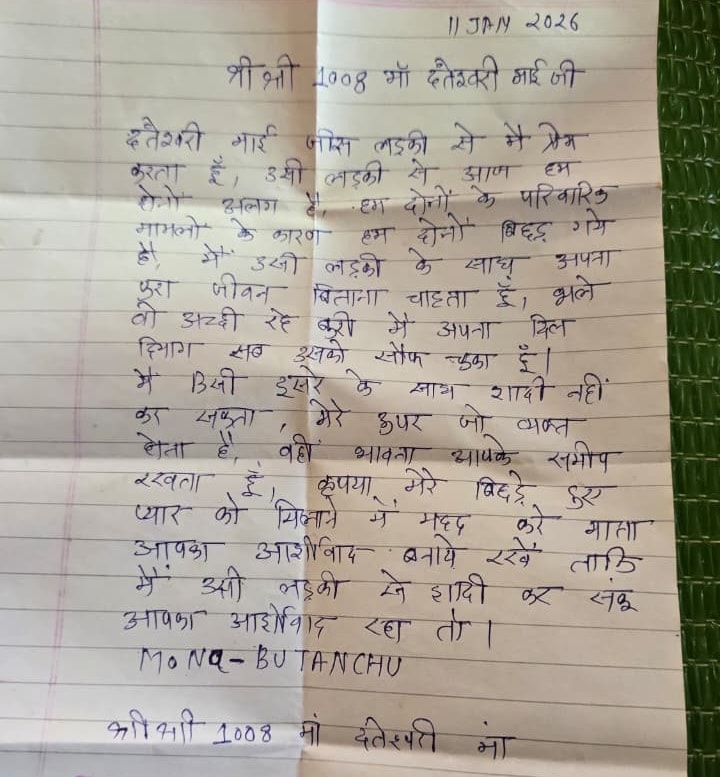 11 JAN 2026
श्री श्री 1008 माँ दंतेश्वरी माई जी
दंतेश्वरी माई जीस लड़की से मै प्रेम
करता हूँ, उसी लड़की से आज हम
दोनों अलग है, हम दोनों के परिवारिक
मामलो के कारण हम दोनों बिछड़ गये
है, मैं उसी लड़की के साथ अपना
पुरा जीवन बिताना चाहता हूँ, भले
वो अच्छी रहे बुरी मै अपना दिल
दिमाग सब उसको सौफ चुका हूँ।
मै किसी दुसरे के साथ शादी नहीं
कर सकता, मेरे ऊपर जो व्यक्त
होता है, वहीं भावना आपके समीप
रखता हूँ, कृपया मेरे बिछड़े हुए
प्यार को मिलाने में मदद करे माता
आपका आर्शीवाद बनाये रखें ताकि
मैं उसी लड़की से शादी कर सकू
आपका आर्शीवाद रहा तो।
MONA-BUTANCHU
श्री श्री 1008 मां दंतेश्वरी मां